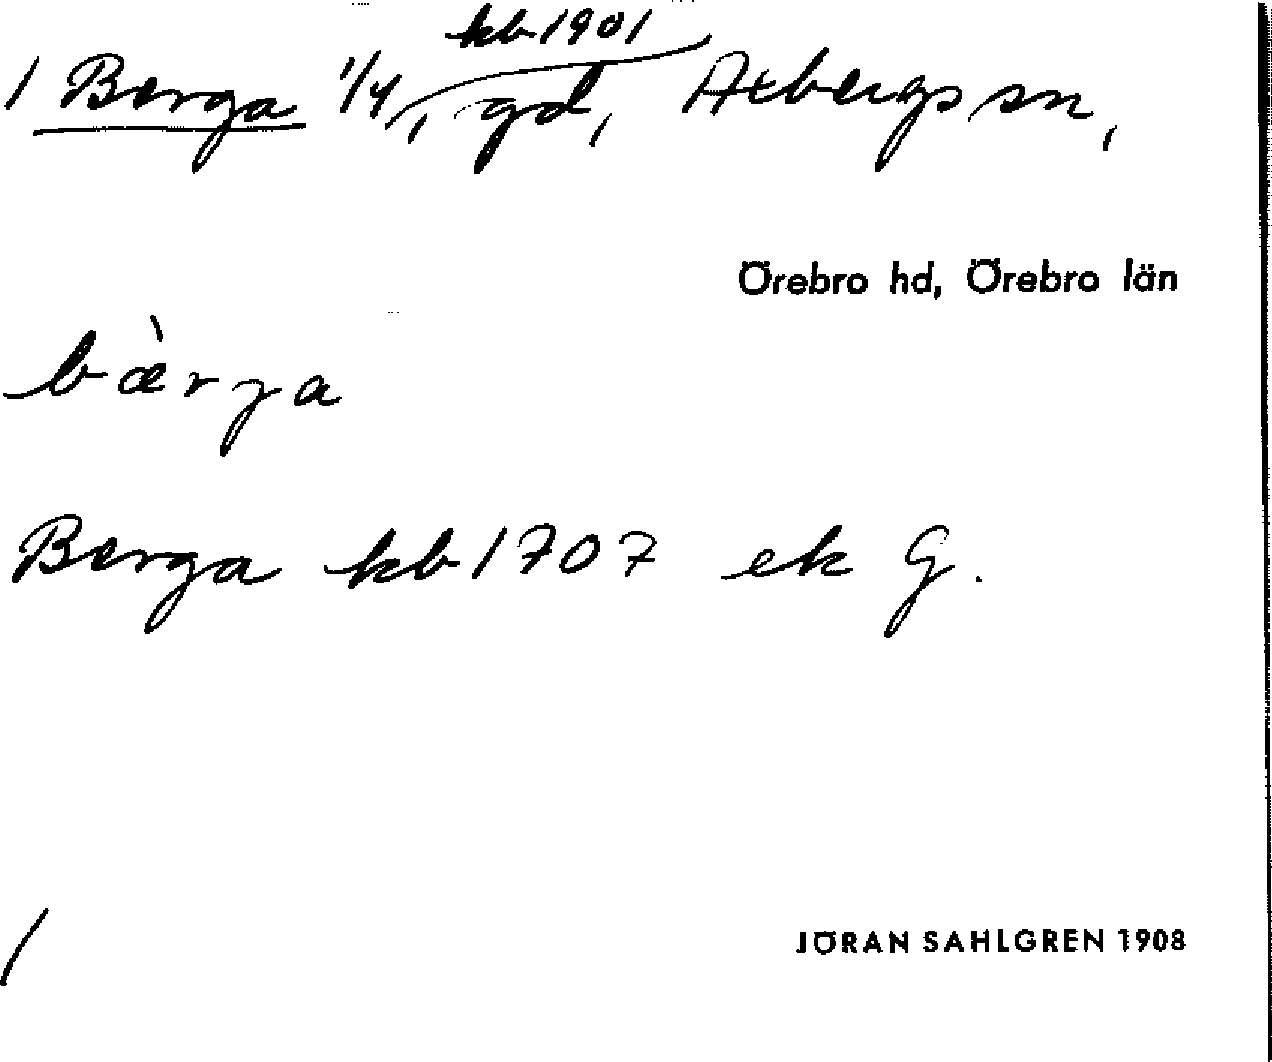 kb 1901
/ Berga 1/4, gd, Axbergs sn,
Örebro hd, Örebro län
bæ̀rja
Berga kb 1707 ek G.
/
JÖRAN SAHLGREN 1908